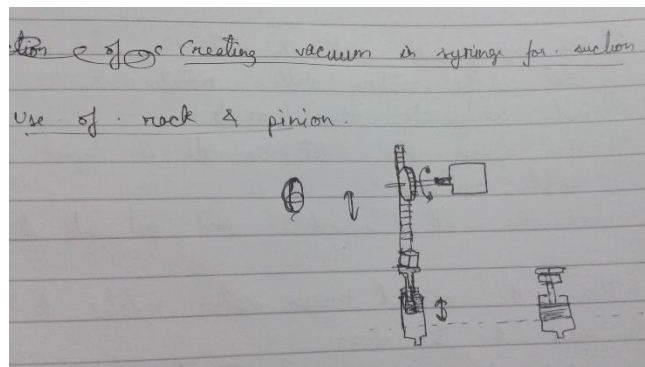 of Creating vacuum in syringe for suction
Use of rack & pinion.